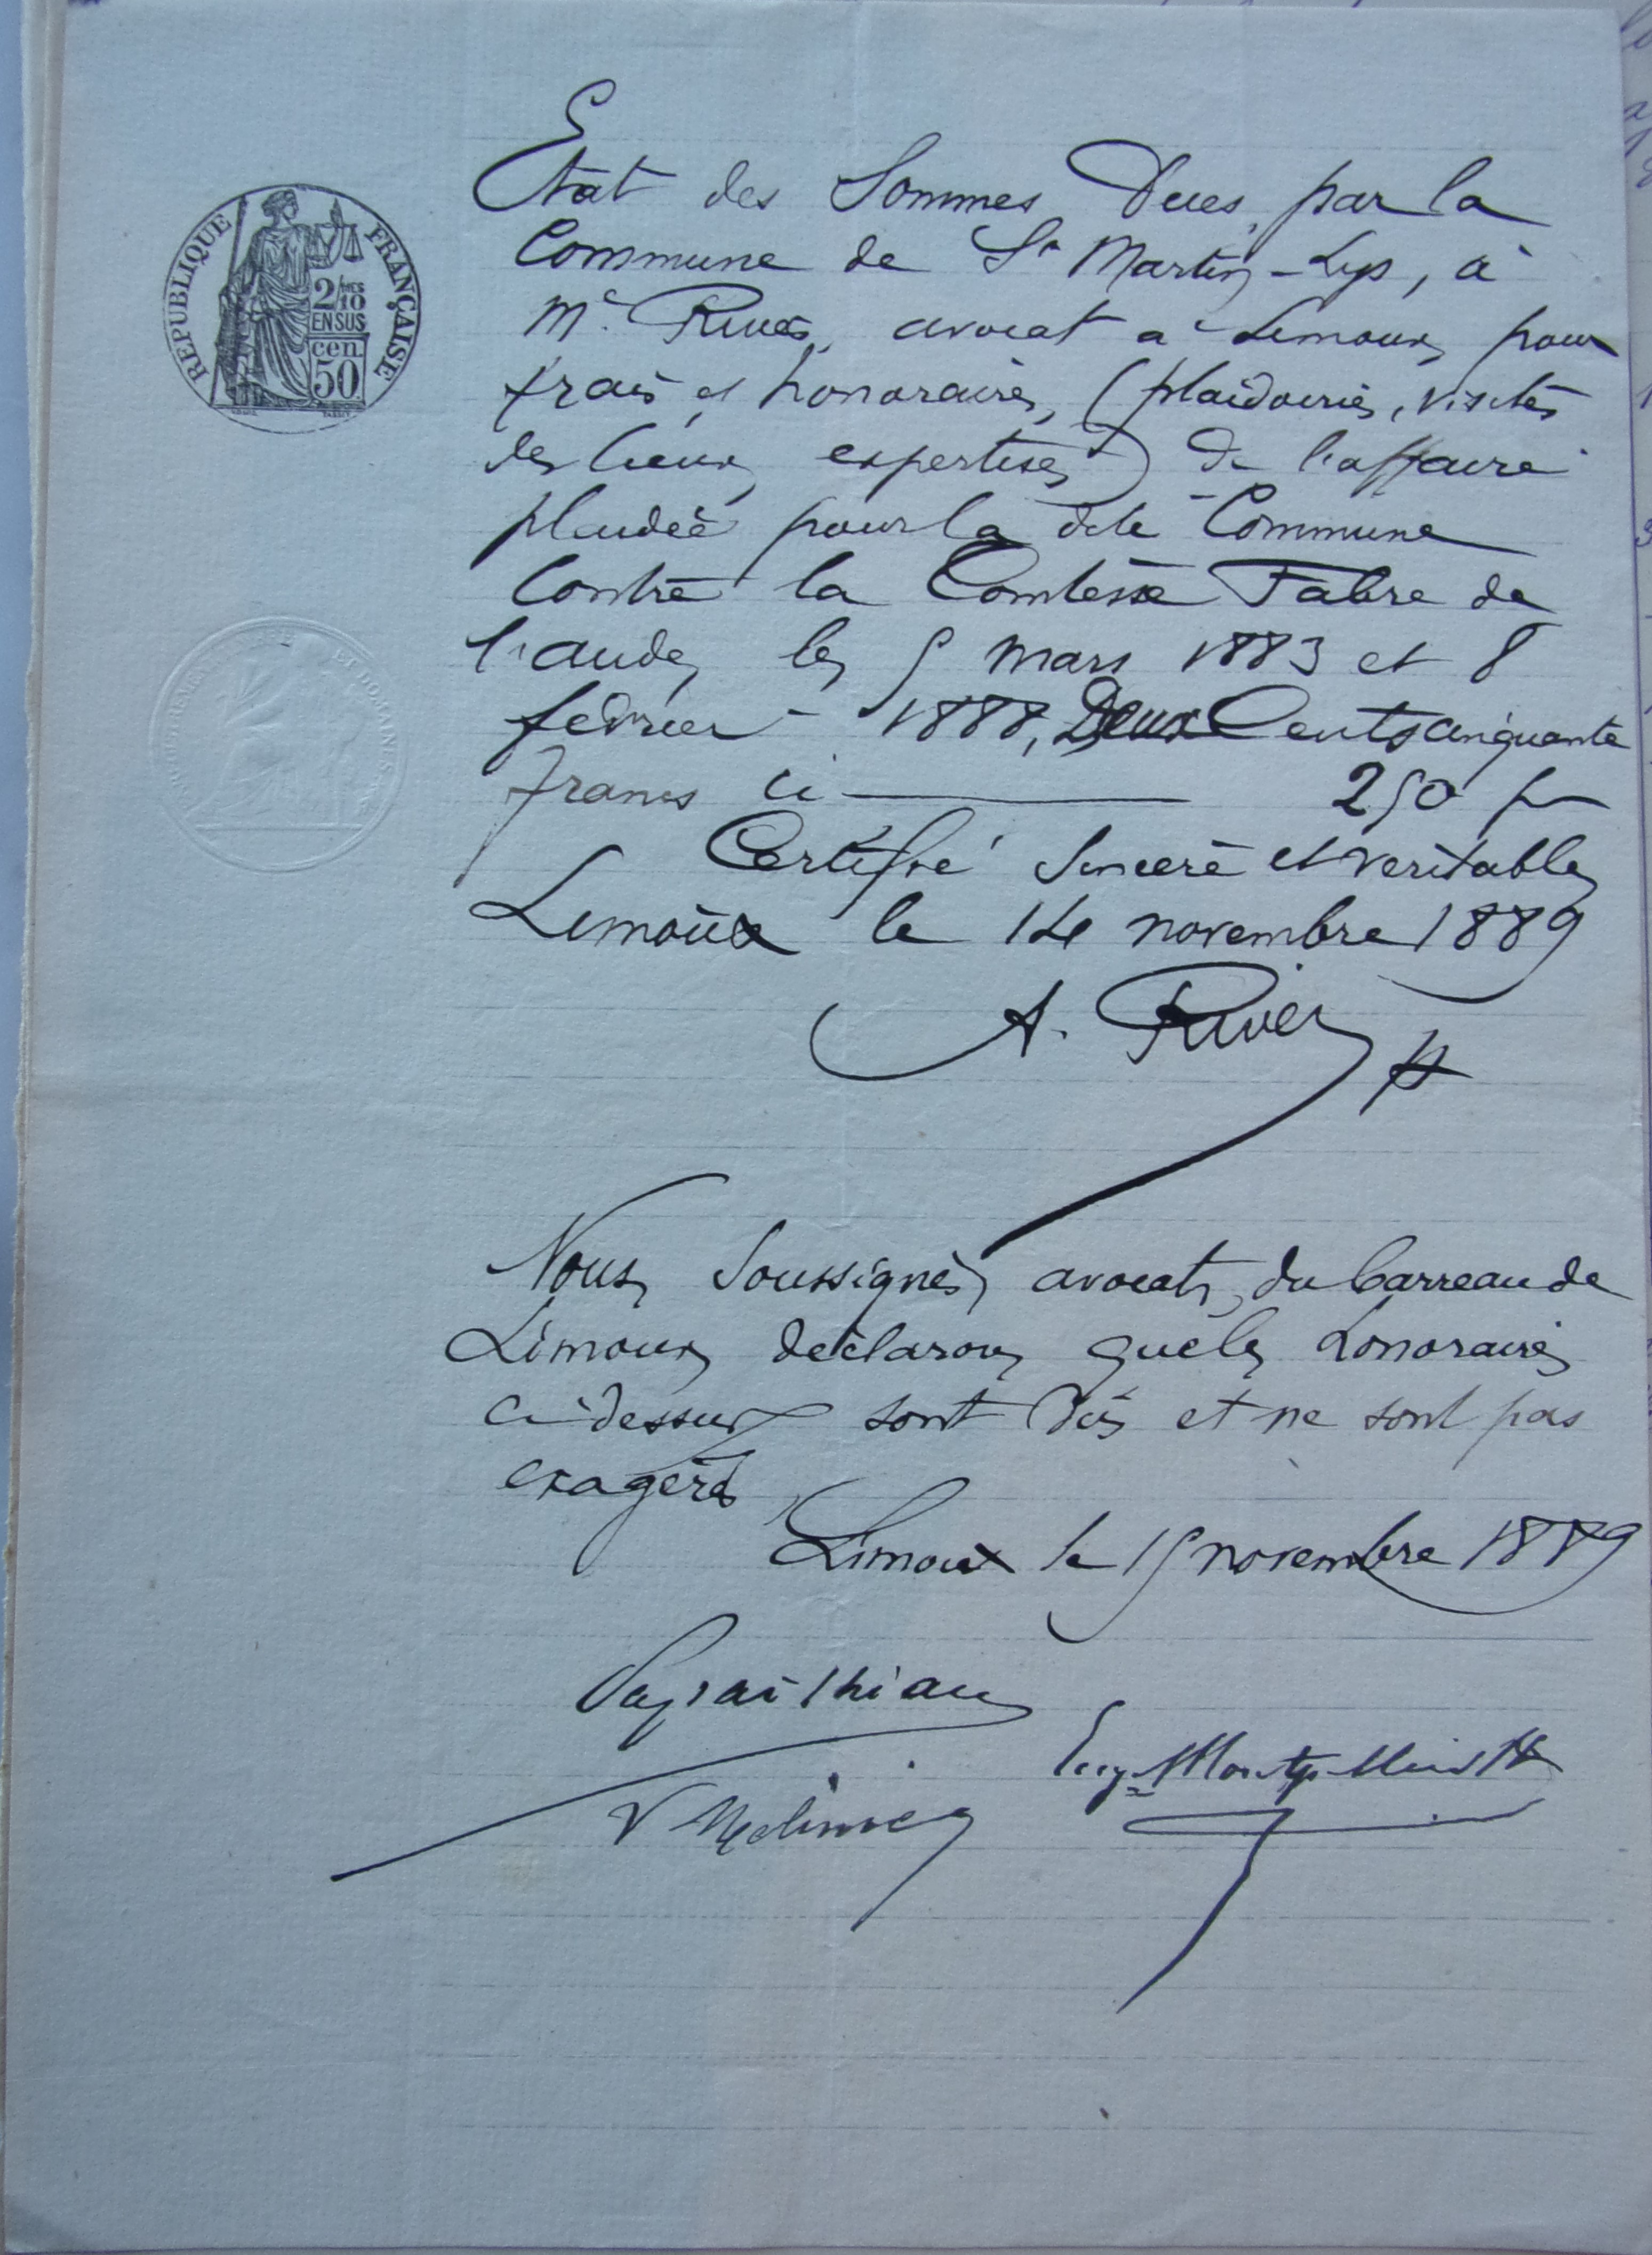 REPUBLIQUE FRANÇAISE
2/10 MES
EN SUS
50 cen.
Etat des Sommes Dues par la
Commune de St Martin-Lys, à
Me Rives, avocat a Limoux, pour
frais et honoraires, (plaidoiries, visites
des lieux, expertises) de l'affaire
plaidée pour la dite Commune
Contre la Comtesse Fabre de
l'aude, les 5 mars 1883 et 8
fevrier 1888, Deux Cents cinquante
francs ci — 250 f
Certifié Sincere et veritable
Limoux le 14 novembre 1889
A. Rives
Nous Soussignés, avocats, du barreau de
Limoux, declarons que les honoraires
ci-dessus sont dûs et ne sont pas
exagérés
Limoux le 15 novembre 1889